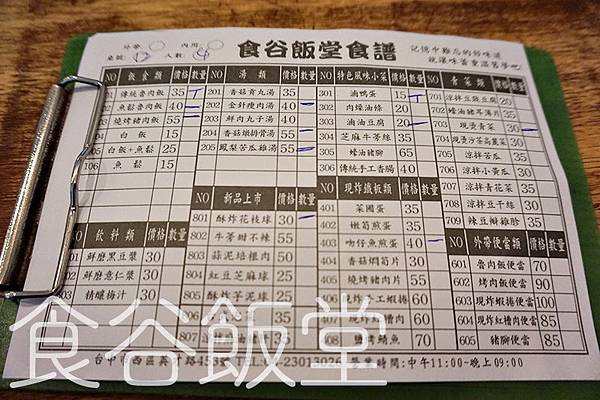 外帶 內用
桌號 人數
食谷飯堂食譜
記憶中難忘的好味道
就讓味蕾重溫舊夢吧
NO 飯食類 價格 數量
傳統魯肉飯 35
魚鬆魯肉飯 40
燒烤豬肉飯 50
104 白飯 15
105 白飯+魚鬆 25
106 魚鬆 15
NO 飲料類 價格 數量
鮮磨黑豆漿 30
鮮磨薏仁漿 30
精釀梅汁 30
NO 湯類 價格 數量
201 香菇貢丸湯 35
202 金針瘦肉湯 40
203 鮮肉丸子湯 40
204 香菇燉排骨湯 55
205 鳳梨苦瓜雞湯 55
NO 新品上市 價格 數量
801 酥炸花枝球 30
802 牛蒡甜不辣 55
803 蒜泥培根肉 50
804 紅豆芝麻球 25
805 酥炸芋泥球
NO 特色風味小菜 價格 數量
301 滷鴨蛋 15
302 肉燥油條 20
303 滷油豆腐 20
304 芝麻牛蒡絲 35
305 蠔油豬腳 65
306 傳統手工香腸 40
NO 現炒鐵板類 價格 數量
401 菜圃蛋 35
402 嫩筍煎蛋 35
403 吻仔魚煎蛋 40
404 香菇燜筍片 30
405 燒烤豬肉片 55
408 鹽烤鯖魚 70
NO 青菜類 價格 數量
701 涼拌三絲豆腐 20
702 蠔油豬耳薄片 35
703 現燙青菜 30
704 現燙沙茶高麗菜 30
705 涼拌苦瓜 35
706 涼拌小黃瓜 30
707 涼拌青花菜 35
708 涼拌豆干絲 30
709 辣豆瓣雞胗 35
NO 外帶便當類 價格 數量
601 魯肉飯便當 70
602 烤肉飯便當 90
603 現炸蝦捲便當 100
604 現炸紅糟肉便當 85
605 豬腳便當 85
營業時間:中午11:00~晚上09:00
食谷飯堂